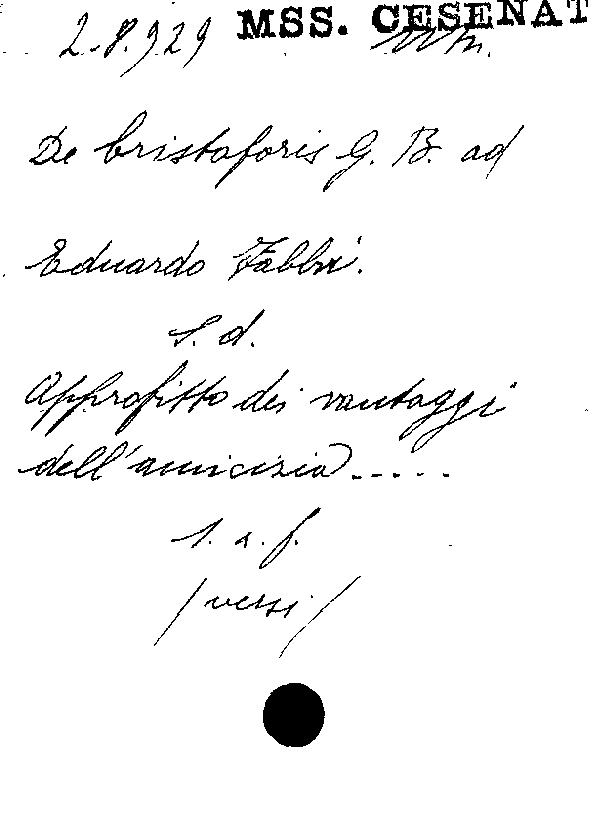 MSS. CESENAT
2.8.929
De Cristoforis G. B. ad
Eduardo Fabbri.
S. d.
Approfitto dei vantaggi
dell'amicizia.....
1. a. f.
/versi/